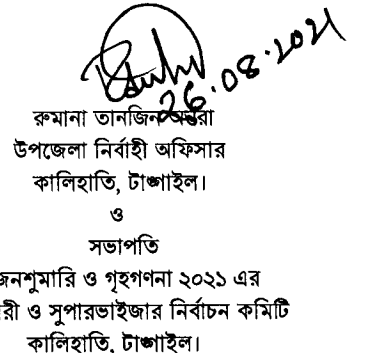 26.08.2021
রুমানা তানজিন
উপজেলা নির্বাহী অফিসার
কালিহাতি, টাঙ্গাইল।
ও
সভাপতি
জনশুমারি ও গৃহগণনা ২০২১ এর
রী ও সুপারভাইজার নির্বাচন কমিটি
কালিহাতি, টাঙ্গাইল।